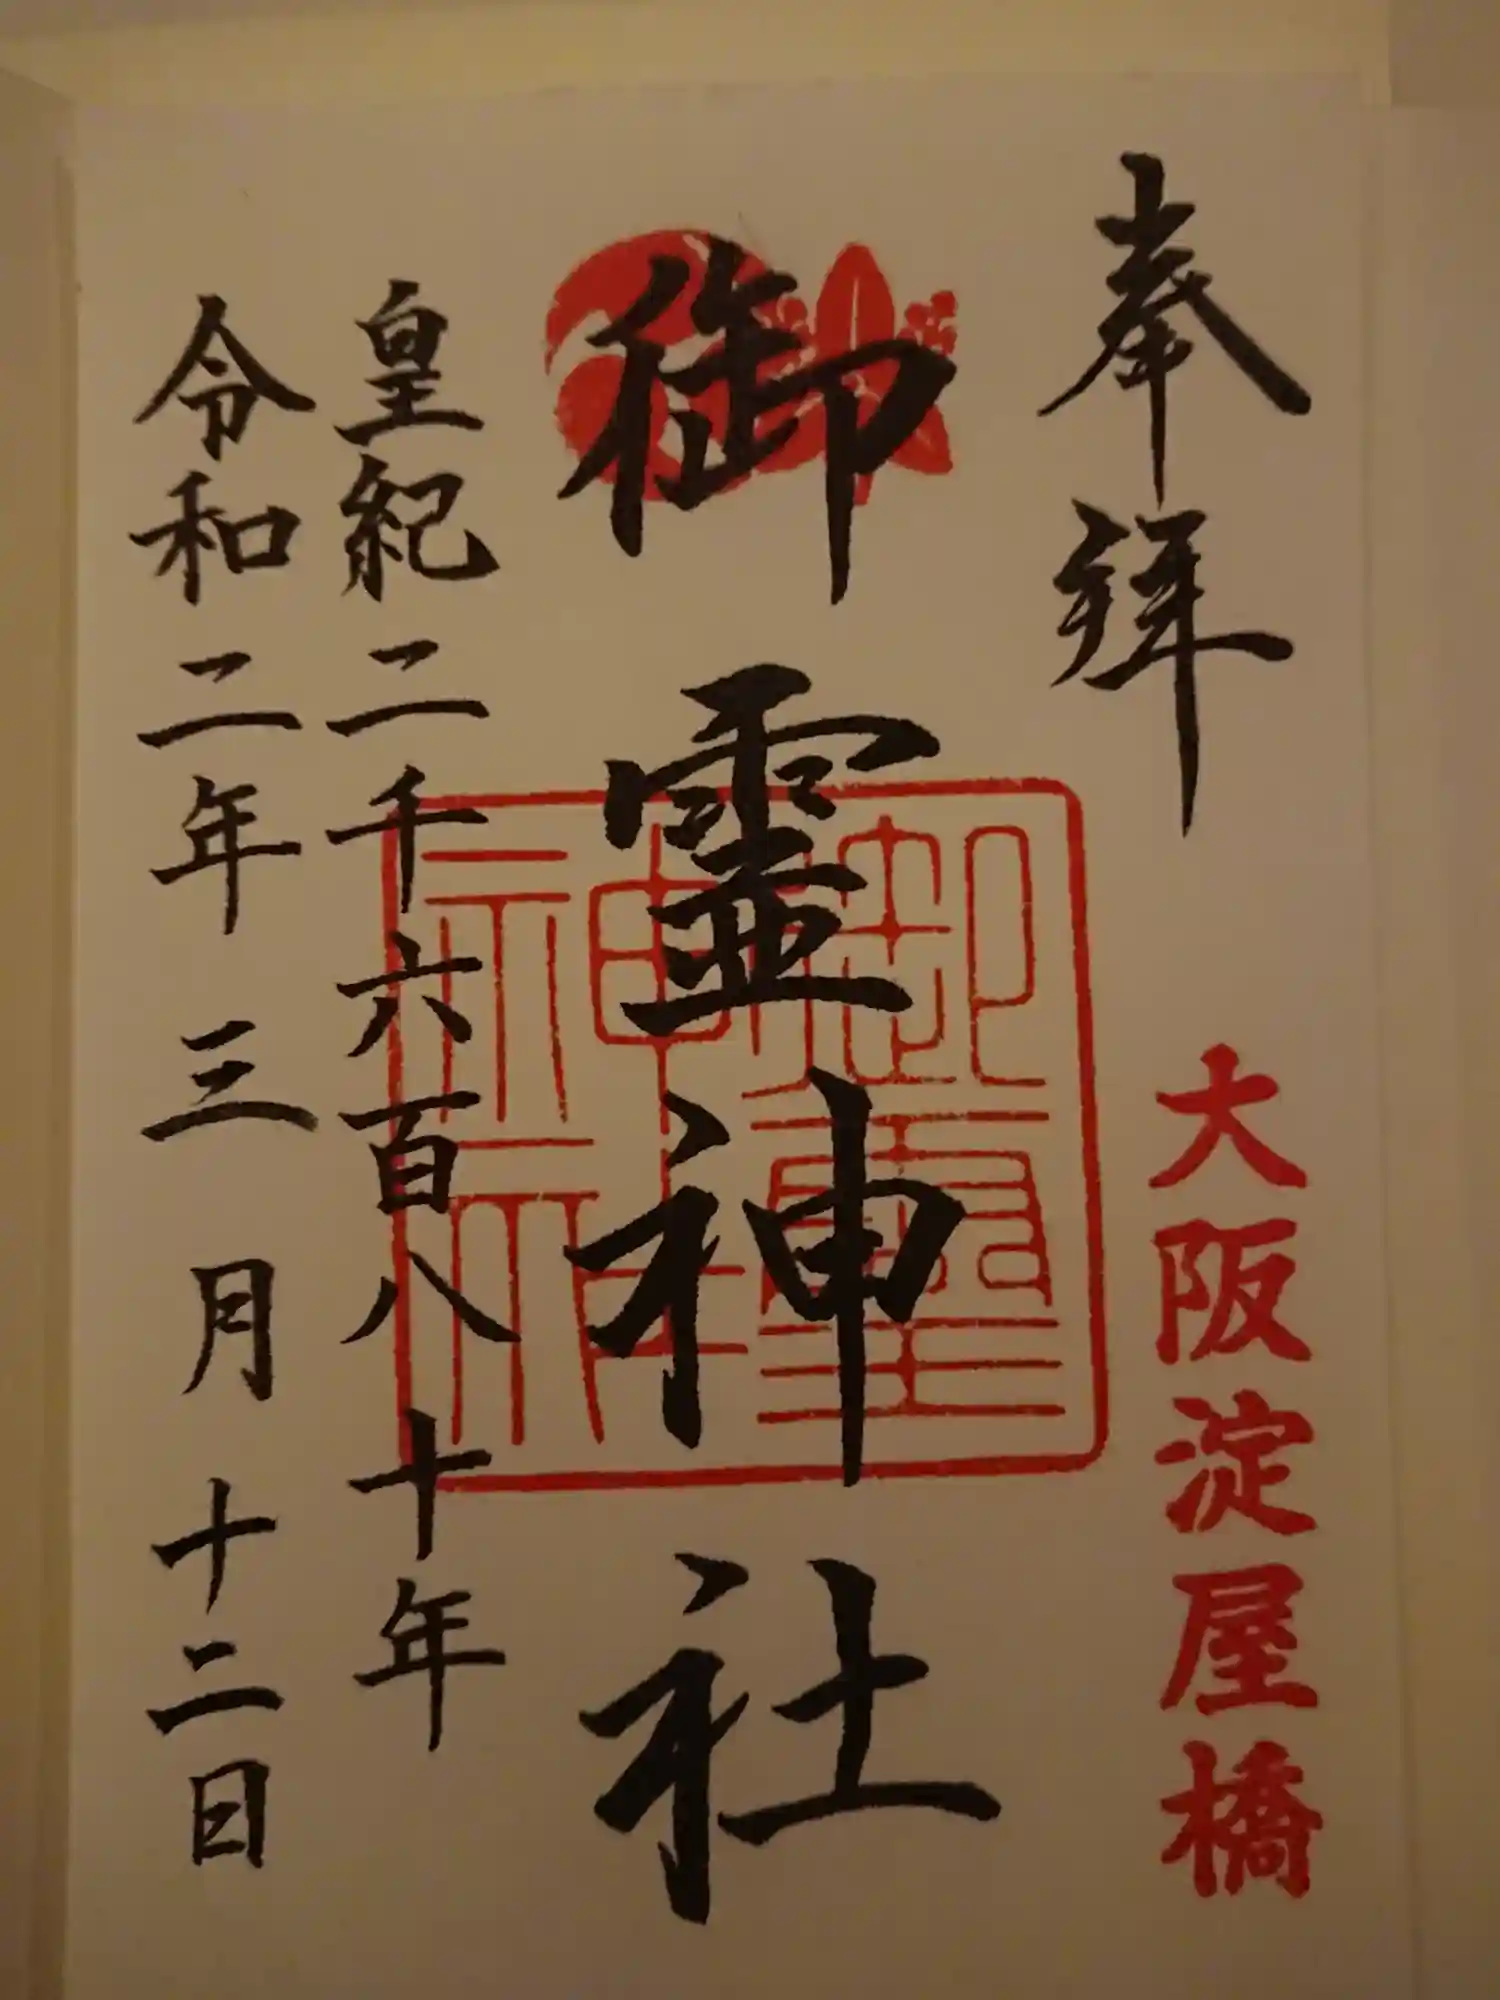 奉拜
大阪淀屋橋
御霊神社
御霊神社
皇紀二千六百八十年
令和二年三月十二日